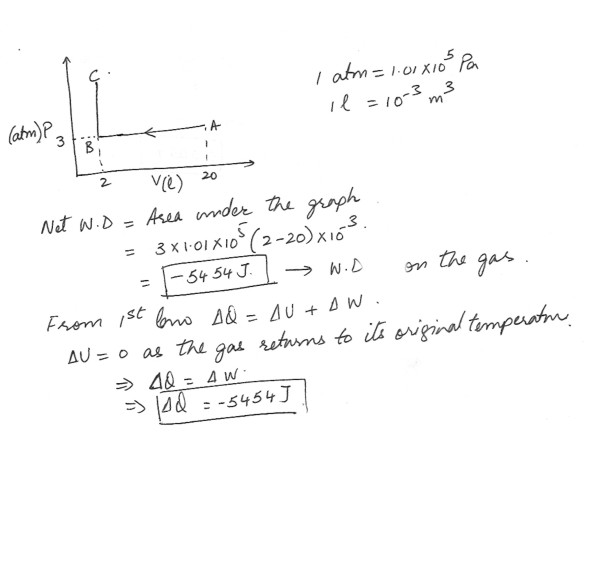 1 atm = 1.01 × 10⁵ Pa
1 l = 10⁻³ m³
C
(atm) P
3
B
A
2
V(l)
20
Net W.D = Area under the graph
= 3 × 1.01 × 10⁵ (2 - 20) × 10⁻³.
= -5454 J. → W.D on the gas.
From 1st law ΔQ = ΔU + ΔW.
ΔU = 0 as the gas returns to its original temperature.
⇒ ΔQ = ΔW.
⇒ ΔQ = -5454 J